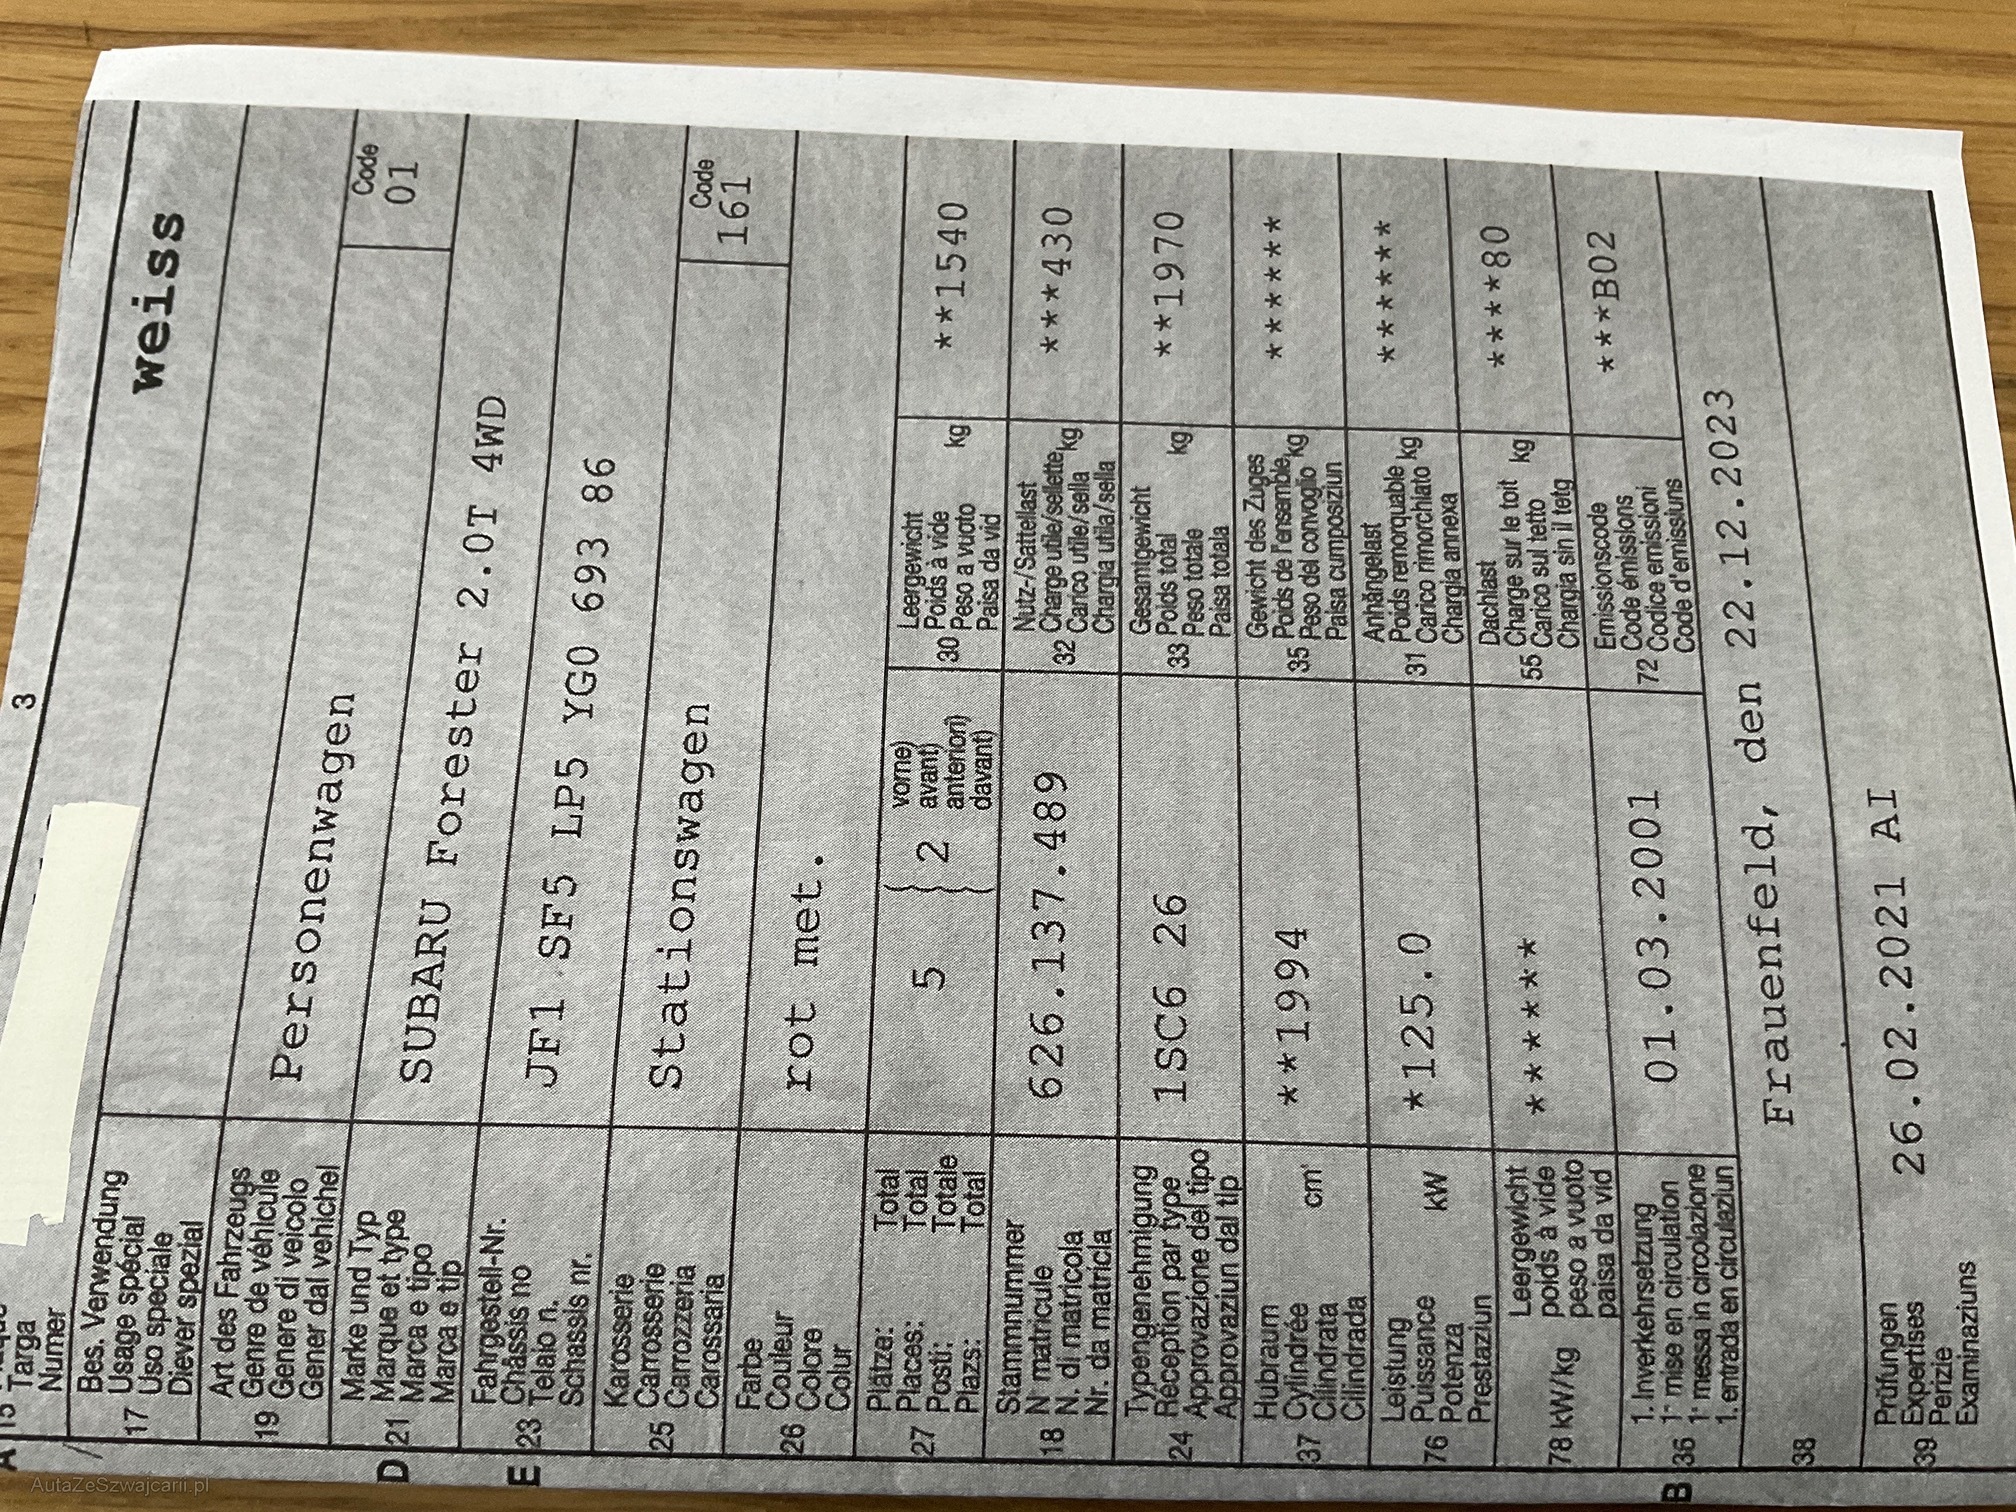 Targa
Numer
3
weiss
17 Bes. Verwendung
Usage spécial
Uso speciale
Diever spezial
19 Art des Fahrzeugs
Genre de véhicule
Genere di veicolo
Gener dal vehichel
Personenwagen
Code
01
D 21 Marke und Typ
Marque et type
Marca e tipo
Marca e tip
SUBARU Forester 2.0T 4WD
E 23 Fahrgestell-Nr.
Châssis no
Telaio n.
Schassis nr.
JF1 SF5 LP5 YG0 693 86
25 Karosserie
Carrosserie
Carrozzeria
Carossaria
Stationswagen
Code
161
26 Farbe
Couleur
Colore
Colur
rot met.
27 Plätze: Total
Places: Total
Posti: Totale
Plazs: Total
5 2
vorne)
avant)
anteriori)
davant)
30 Leergewicht
Poids à vide
Peso a vuoto
Paisa da vid
kg
**1540
18 Stammnummer
N matricule
N. di matricola
Nr. da matricla
626.137.489
32 Nutz-/Sattellast
Charge utile/sellette
Carico utile/sella
Chargia utila/sella
kg
***430
24 Typengenehmigung
Réception par type
Approvazione del tipo
Approvaziun dal tip
1SC6 26
33 Gesamtgewicht
Poids total
Peso totale
Paisa totala
kg
**1970
37 Hubraum
Cylindrée
Cilindrata
Cilindrada
cm³
**1994
35 Gewicht des Zuges
Poids de l'ensemble
Peso del convoglio
Paisa cumposiziun
kg
*******
76 Leistung
Puissance
Potenza
Prestaziun
kW
*125.0
31 Anhängelast
Poids remorquable
Carico rimorchiato
Chargia annexa
kg
*******
78 kW/kg Leergewicht
poids à vide
peso a vuoto
paisa da vid
*******
55 Dachlast
Charge sur le toit
Carico sul tetto
Chargia sin il tetg
kg
*****80
B 36 1. Inverkehrsetzung
1re mise en circulation
1a messa in circolazione
1. entrada en circulaziun
01.03.2001
72 Emissionscode
Code émissions
Codice emissioni
Code d'emissiuns
***B02
38 Frauenfeld, den 22.12.2023
39 Prüfungen
Expertises
Perizie
Examinaziuns
26.02.2021 AI
AutaZeSzwajcarii.pl